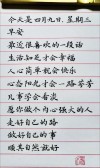 今天是四月九日,星期三
早安
最近很喜欢的一段话
生活知足才会幸福
人心简单就会快乐
心态阳光才会一路芬芳
凡事学会看淡
愿你做个内心强大的人
走好自己的路
做好自己的事
顺其自然就好